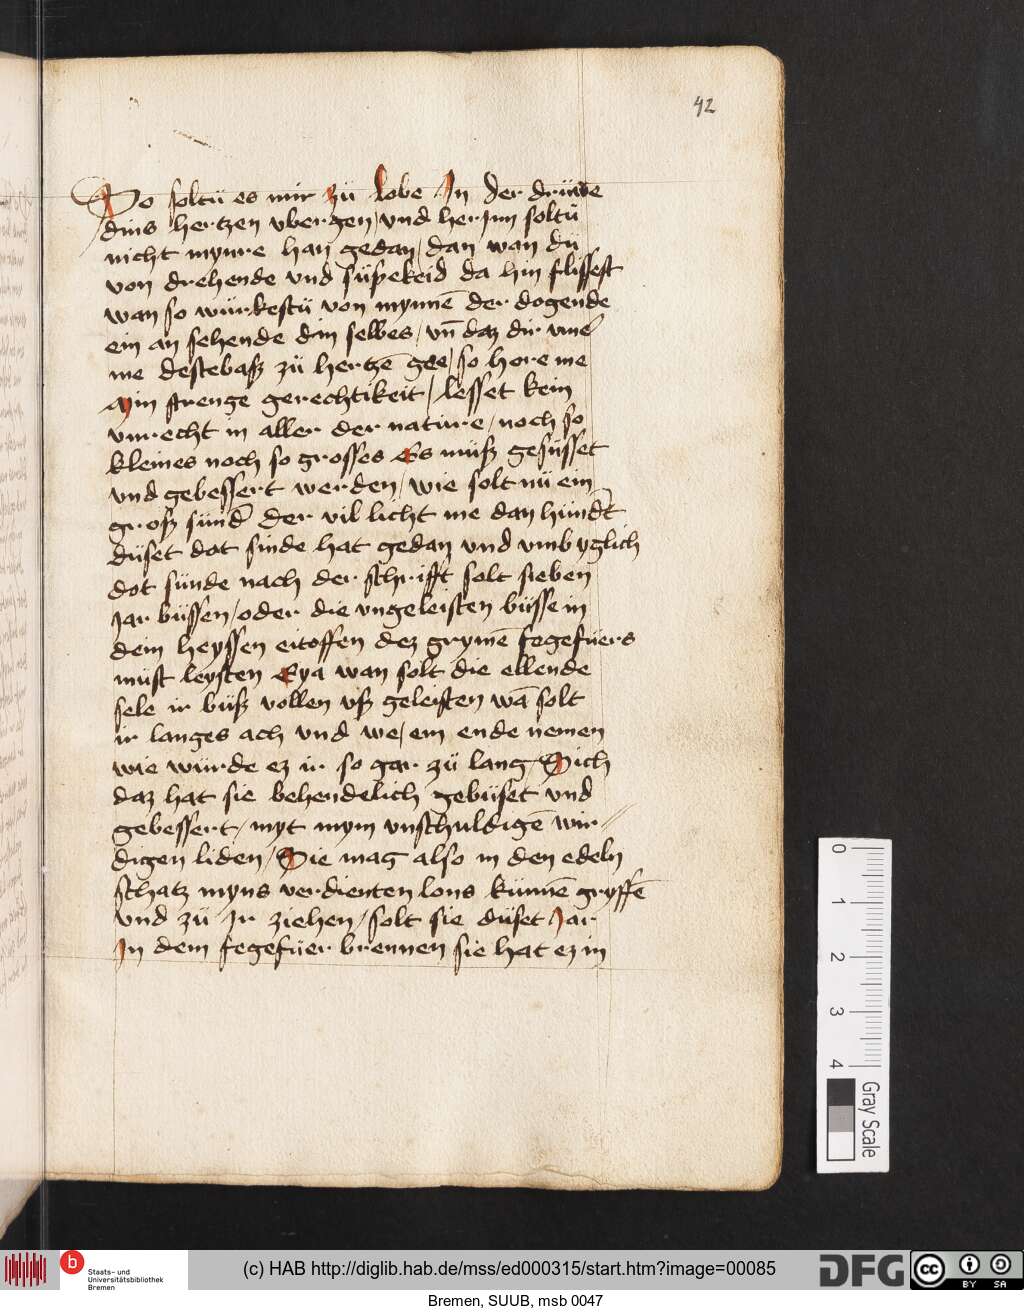 42
So soltu es mir zů lobe In der drůwe
dins hertzen vbergen / vnd her jnn soltů
nicht mynre han gedan / dan wan dů
von drehende vnd sůßekeid da hin flissest
wan so wůrkestů von mynnē der dogende
ein an sehende din selbes / vn̄ daz dir vmer
me destebaß zů hertzē gee / so hore me
Myn strenge gerechtikeit / lesset kein
vnrecht in aller der nature / noch so
kleines noch so grosses Es můß gesůsset
vnd gebessert werden / wie solt nů ein
groß sůnder der vil licht me dan hundert
důset dot sinde hat gedan vnd vmb yglich
dot sůnde nach der schrifft solt sieben
Jar bůssen / oder die vngeleisten bůsse in
dem heyssen eitoffen dez grymē fegefůers
můst leysten Eya wan solt die ellende
sele ir bůß vollen vß geleisten wā solt
ir langes ach vnd we / ein ende nemen
wie wůrde ez ir so gar zů lang / Sich
daz hat sie behendelich gebůset vnd
gebessert / myt mym vnschuldigē wir//
digen liden / Sie mag also in den edeln
schatz myns verdienten lons kůnnē gryffē
vnd zů Ir ziehen / solt sie důset Jar
In dem fegefůer brennen sie hat ez in
0
1
2
3
4
Gray Scale
b
Staats- und
Universitätsbibliothek
Bremen
(c) HAB http://diglib.hab.de/mss/ed000315/start.htm?image=00085
DFG
cc
BY SA
Bremen, SUUB, msb 0047